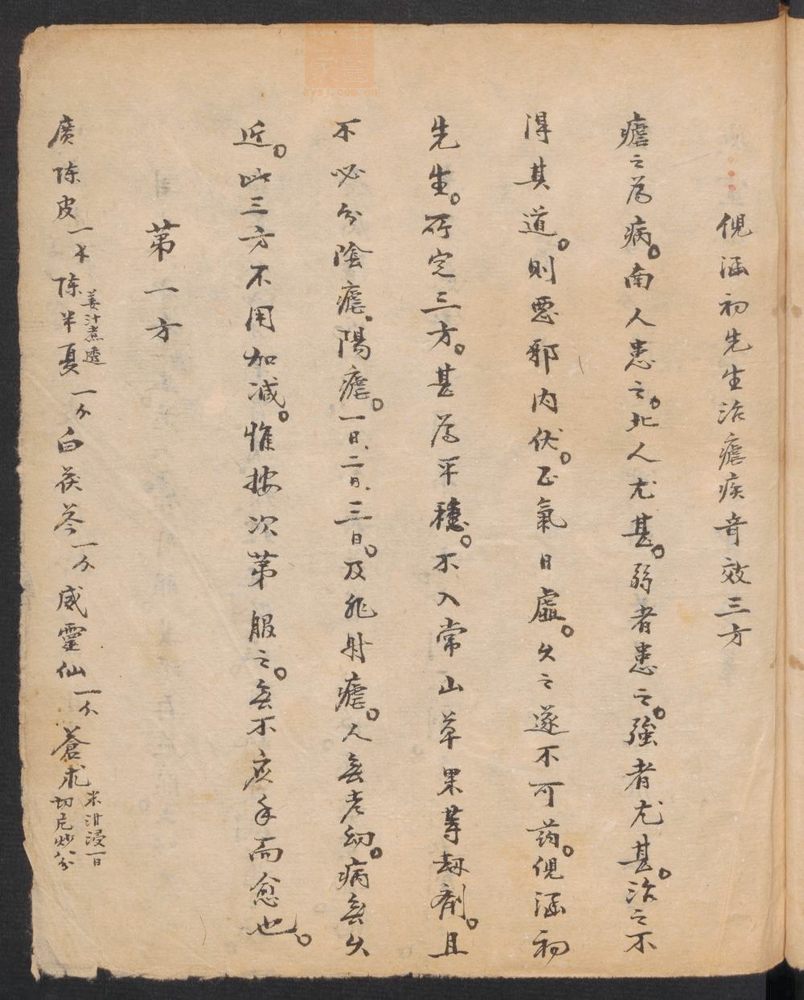 倪涵初先生治瘧疾奇效三方
瘧之為病。南人患之。北人尤甚。弱者患之。強者尤甚。治之不
得其道。則惡邪內伏。正氣日虛。久之遂不可药。倪涵初
先生。所定三方。甚為平穩。不入常山草果等劫劑。且
不必分陰瘧。陽瘧。一日、二日、三日。及非時瘧。人無老幼。病無久
近。此三方不用加減。惟按次第服之。無不應手而愈也。
第一方
廣陳皮 陳半夏姜汁煮透 白茯苓 威靈仙 蒼朮米泔浸一日切片炒